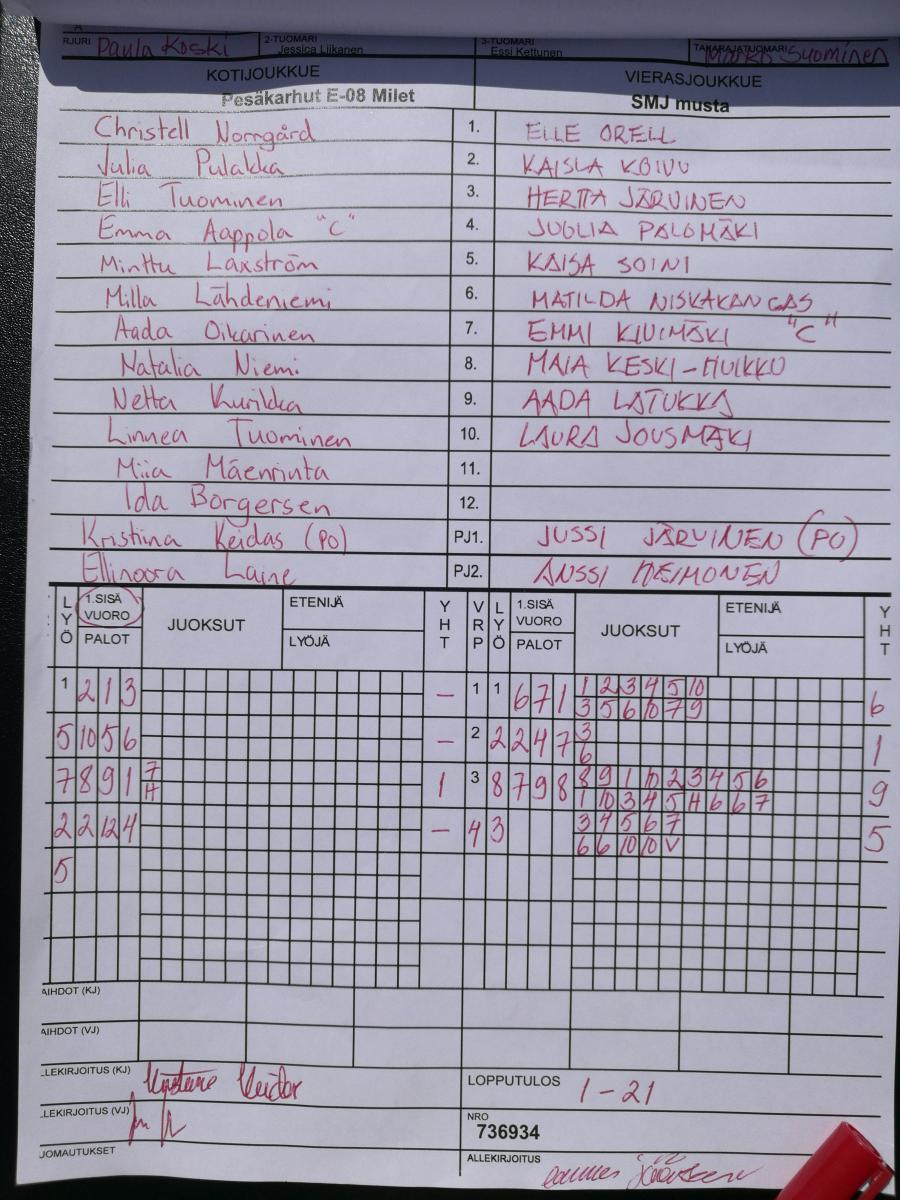 RJURI Paula Koski 2-TUOMARI Jessica Liikanen 3-TUOMARI Essi Kettunen TAKARAJATUOMARI Suominen
KOTIJOUKKUE VIERASJOUKKUE
Pesäkarhut E-08 Milet SMJ musta
Christell Norrgård 1. ELLE ORELL
Julia Pulakka 2. KAISLA KOIVU
Elli Tuominen 3. HERTTA JÄRVINEN
Emma Aappola "C" 4. JUULIA PALOMÄKI
Minttu Laxström 5. KAISA SOINI
Milla Lähdeniemi 6. MATILDA NISKAKANGAS
Aada Oikarinen 7. EMMI KIVIMÄKI "C"
Natalia Niemi 8. MAIA KESKI-HUIKKO
Netta Kurikka 9. AADA LATUKKA
Linnea Tuominen 10. LAURA JOUSMÄKI
Miia Mäenrinta 11.
Ida Borgersen 12.
Kristiina Keidas (PO) PJ1. JUSSI JÄRVINEN (PO)
Ellinoora Laine PJ2. ANSSI HEIMONEN
LYÖ 1.SISÄ VUORO PALOT JUOKSUT ETENIJÄ LYÖJÄ YHT VRP LYÖ 1.SISÄ VUORO PALOT JUOKSUT ETENIJÄ LYÖJÄ YHT
1 2 1 3 – 1 1 6 7 1 1 2 3 4 5 10 6
3 5 6 10 7 9
5 10 5 6 – 2 2 2 4 7 3 1
6
7 8 9 1 7 1 3 8 7 9 8 8 9 1 10 2 3 4 5 6 9
H 1 10 3 4 5 H 6 6 7
2 2 12 4 – 4 3 3 4 5 6 7 5
6 6 10 10 V
5
AIHDOT (KJ)
AIHDOT (VJ)
LLEKIRJOITUS (KJ) LOPPUTULOS 1-21
LLEKIRJOITUS (VJ) NRO 736934
UOMAUTUKSET ALLEKIRJOITUS